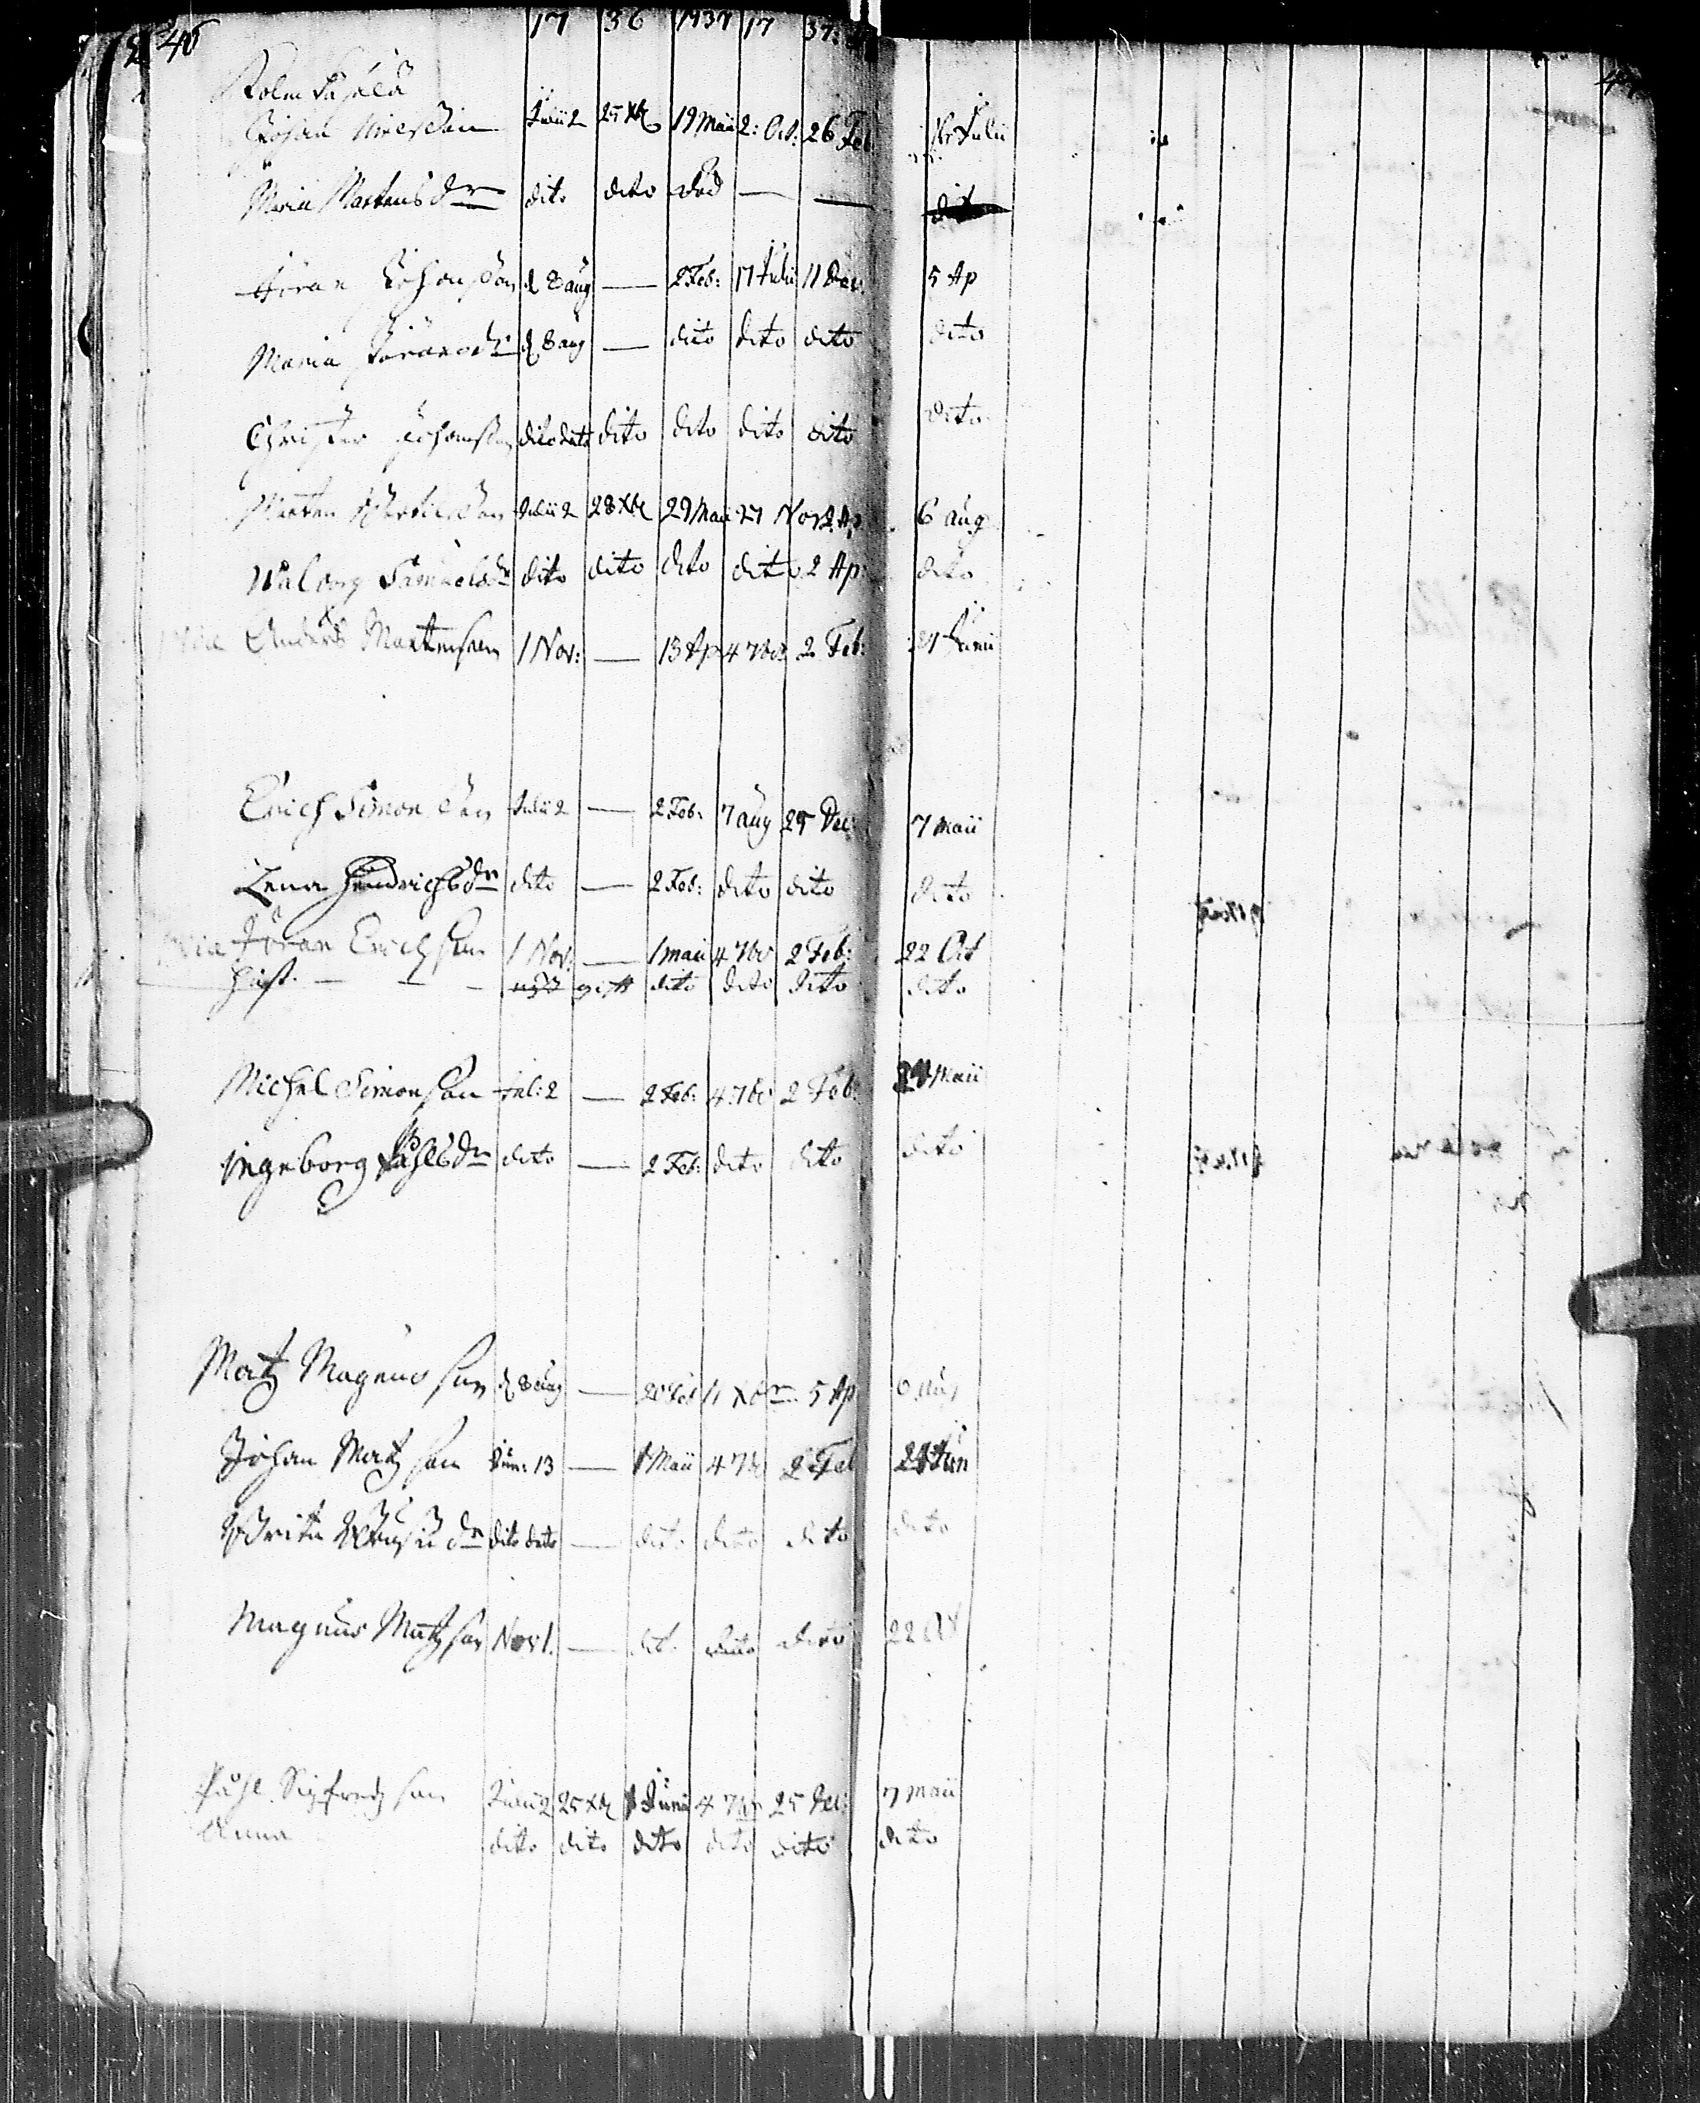 46 17 36 1737 17 37
Johan Julii 2 25 Xbr 19 Maii 2: Oct: 26 Feb Julii
Maria Martensdr dito dito död — —
Jöran Johanson d 8 aug — 2 Feb: 17 Julii 11 Dec. 5 Ap
Maria Jöransdr d 8 aug — dito dito dito dito
Christer Johanson dito dato dito dito dito dito dito
Marten Julii 2 28 Xbr 29 Maii 27 Nov 2 Ap 6 aug
Walborg Samuelsdr dito dito dito dito 2 Ap: dito
Anders Martenson 1 Nov: — 13 Ap 4 7br 2 Feb: Junii
Erich Simonson Julii 2 — 2 Feb: 7 aug 25 Dec: 7 maii
Lena Hendrichsdr dito — 2 Feb: dito dito dito
Jöran Erichson 1 Nov: — 1 maii 4 7br 2 Feb: 22 Oct
Hust. — — — gift dito dito dito dito
Michel Simonson Jul: 2 — 2 Feb: 4 7br 2 Feb: Maii
Ingeborg Påhlsdr dito — 2 Feb: dito dito dito
Matz Magnusson d 8 aug — 20 Feb 11 Xbr 5 Ap 6 aug
Johan Matzson Jun: 13 — 1 Maii 4 7br 2 Feb Jun
Brita dr dito dato — dito dito dito dito
Magnus Matzson Nov 1. — dit. dito dito 22 Oct
Påhl Sigfredzson Julii 2 25 Xbr Junii 4 7br 25 Dec: 7 maii
Anna dito dito dito dito dito dito